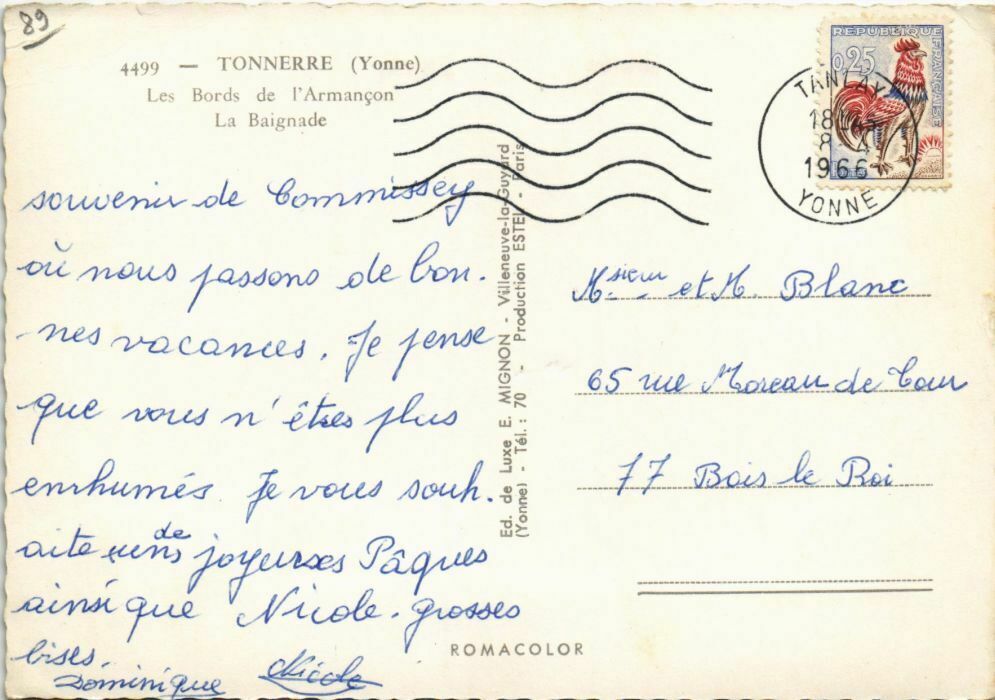 89
4499 — TONNERRE (Yonne)
Les Bords de l'Armançon
La Baignade
souvenir de Commissey
où nous passons de bon-
nes vacances. Je pense
que vous n'êtes plus
enrhumés. Je vous souh-
aite de joyeuses Pâques
ainsi que Nicole. grosses
bises.
Dominique Nicole
Ed. de Luxe E. MIGNON - Villeneuve-la-Guyard
(Yonne) - Tél.: 70 - Production ESTEL - Paris
REPUBLIQUE FRANÇAISE
0,25
POSTES
TANLAY
18H45
8-4
1966
YONNE
Msieur et M. Blanc
65 rue Moreau de Tour
77 Bois le Roi
ROMACOLOR